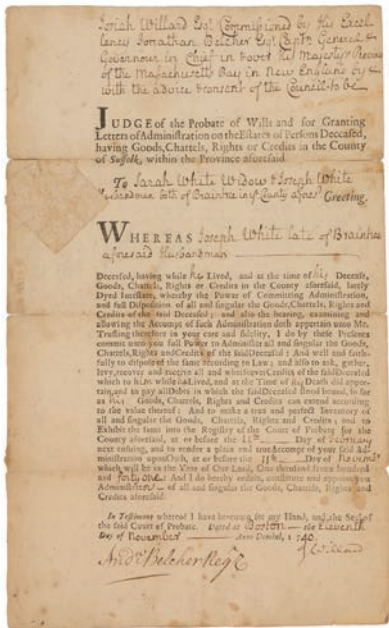 Josiah Willard Esqr. Commissioned by His Excel
lency Jonathan Belcher Esqr. Captn. General &
Governour in Chief in & over his Majestys Provce
of the Massachusetts Bay in New England by &
with the advice & consent of the Council to be
JUDGE of the Probate of Wills and for Granting
Letters of Administration on the Estates of Persons Deceased,
having Goods, Chattels, Rights or Credits in the County
of Suffolk, within the Province aforesaid
To Sarah White Widow & Joseph White
Husbandman both of Braintree in ye County afores.d Greeting.
WHEREAS Joseph White late of Braintree
aforesaid Husbandman
Deceased, having while he Lived, and at the time of his Decease,
Goods, Chattels, Rights or Credits in the County aforesaid, lately
Dyed Intestate, whereby the Power of Committing Administration,
and full Disposition of all and singular the Goods, Chattels, Rights and
Credits of the said Deceased; and also the hearing, examining and
allowing the Accompts of such Administration doth appertain unto Me.
Trusting therefore in your care and fidelity, I do by these Presents
commit unto you full Power to Administer all and singular the Goods,
Chattels, Rights and Credits of the said Deceased: And well and faith-
fully to dispose of the same according to Law; and also to ask, gather,
levy, recover and receive all and whatsoever Credits of the said Deceased
which to him while he Lived, and at the Time of his Death did apper-
tain, and to pay all Debts in which the said Deceased stood bound, so far
as his Goods, Chattels, Rights and Credits can extend according
to the value thereof: And to make a true and perfect Inventory of
all and singular the Goods, Chattels, Rights and Credits; and to
Exhibit the same into the Registry of the Court of Probate for the
County aforesaid, at or before the 11th Day of February
next ensuing, and to render a plain and true Accompt of your said Ad-
ministration upon Oath, at or before the 11th Day of Novembr
which will be in the Year of Our Lord, One thousand seven hundred
and forty one: And I do hereby ordain, constitute and appoint you
Administrators of all and singular the Goods, Chattels, Rights and
Credits aforesaid.
In Testimony whereof I have hereunto set my Hand, and the Seal of
the said Court of Probate. Dated at Boston the Eleventh
Day of November Anno Domini, 1740.
J Willard
Andw. Belcher Regr